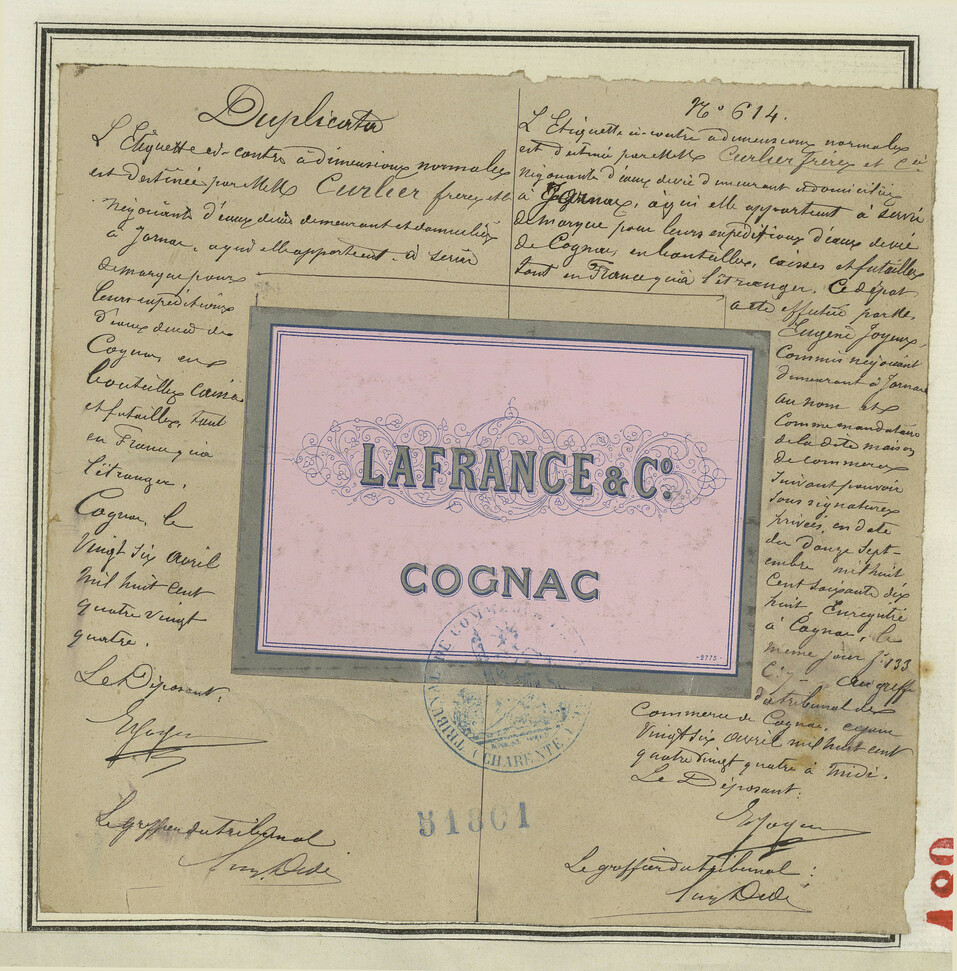 Duplicata
L'Etiquette ci-contre à dimensions normales
est destinée par MM Curlier frères et Cie
négociants d'eaux de vie demeurant et domiciliés
à Jarnac, à qui elle appartient à servir
de marque pour
leurs expéditions
d'eaux de vie de
Cognac en
bouteilles, caisses
et futailles, tant
en France qu'à
l'étranger.
Cognac, le
Vingt six avril
mil huit cent
quatre vingt
quatre.
Le Déposant:
Le greffier du tribunal
No 614.
L'Etiquette ci-contre à dimensions normales
est destinée par MM. Curlier frères et Cie
négociants d'eaux de vie demeurant et domiciliés
à Jarnac, à qui elle appartient à servir
de marque pour leurs expéditions d'eaux de vie
de Cognac, en bouteilles, caisses et futailles
tant en France qu'à l'étranger. Ce dépôt
a été effectué par Mr.
Eugène Joyeux,
Commis négociant
demeurant à Jarnac
au nom et
comme mandataire
de la dite maison
de commerce
suivant pouvoir
sous signatures
privées, en date
du douze Sept-
embre mil huit
Cent soixante dix
huit, Enregistré
à Cognac, le
même jour fo 133
au greffe
du tribunal de
Commerce de Cognac, ce jour
Vingt six avril mil huit cent
quatre vingt quatre à midi.
Le Déposant:
Le greffier du tribunal:
LAFRANCE & Co.
COGNAC
-9775-
TRIBUNAL DE COMMERCE
(CHARENTE)
51801
100